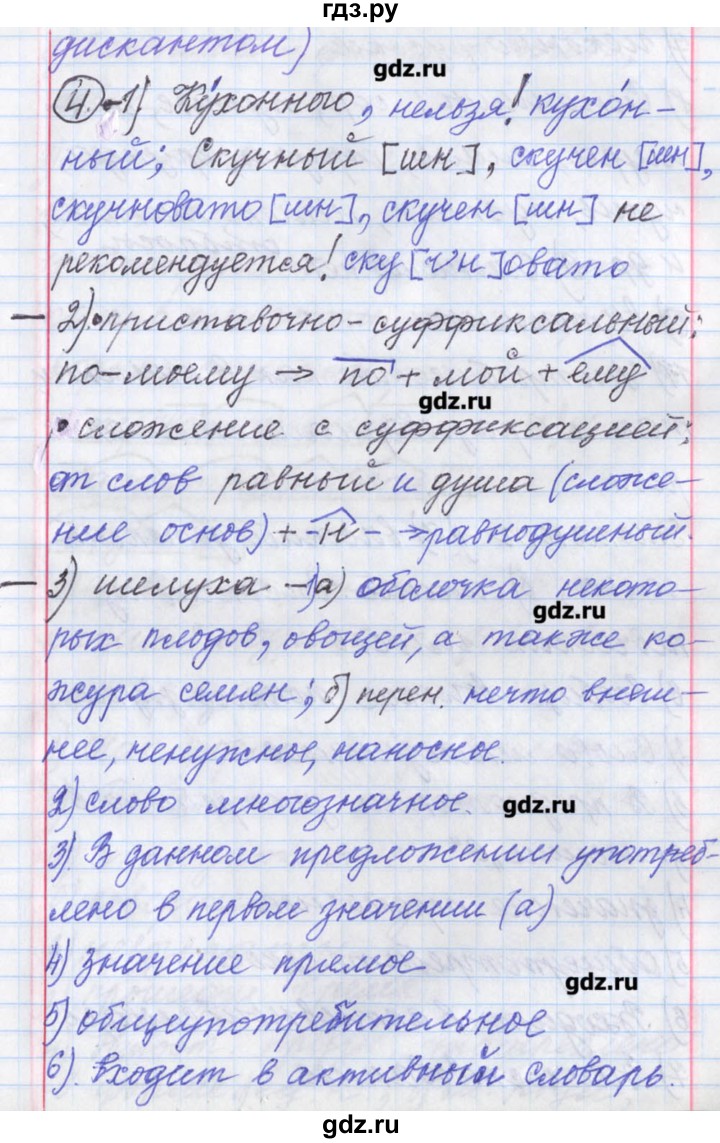 гдз.ру
дискантом)
gdz.ru
④ -1) Ку́хонного, нельзя! кухо́н-
ный; Скучный [шн], скучен [шн],
скучновато [шн], скучен [шн] не
рекомендуется! ску[чн]овато
– 2) • приставочно-суффиксальный:
по-моему → по + мой + ему
gdz.ru
• сложение с суффиксацией:
от слов равный и душа (сложе-
ние основ) + -н- → равнодушный.
– 3) шелуха – 1) а) оболочка некото-
gdz.ru
рых плодов, овощей, а также ко-
жура семен; б) перен. нечто внеш-
нее, ненужное, наносное.
2) слово многозначное.
gdz.ru
3). В данном предложении употреб-
лено в первом значении (а)
4) значение прямое
gdz.ru
5) общеупотребительное
6). входит в активный словарь.
gdz.ru